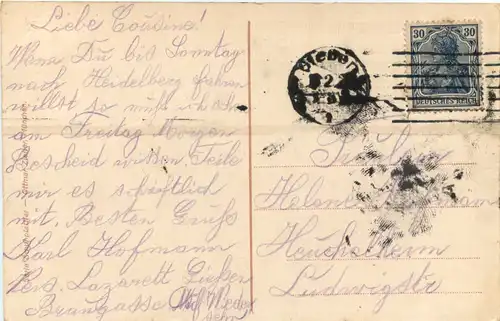 Liebe Cousine!
Wenn Du bis Sonntag
nach Heidelberg fahren
willst so muß ich schon
am Freitag Morgen
Bescheid wissen. Teile
mir es schriftlich
mit. Besten Gruß
Karl Hofmann
Res. Lazarett Gießen
Braugasse Auf Wieder
sehn
30 30
DEUTSCHES REICH
Helene
Heuchelheim
Ludwigstr